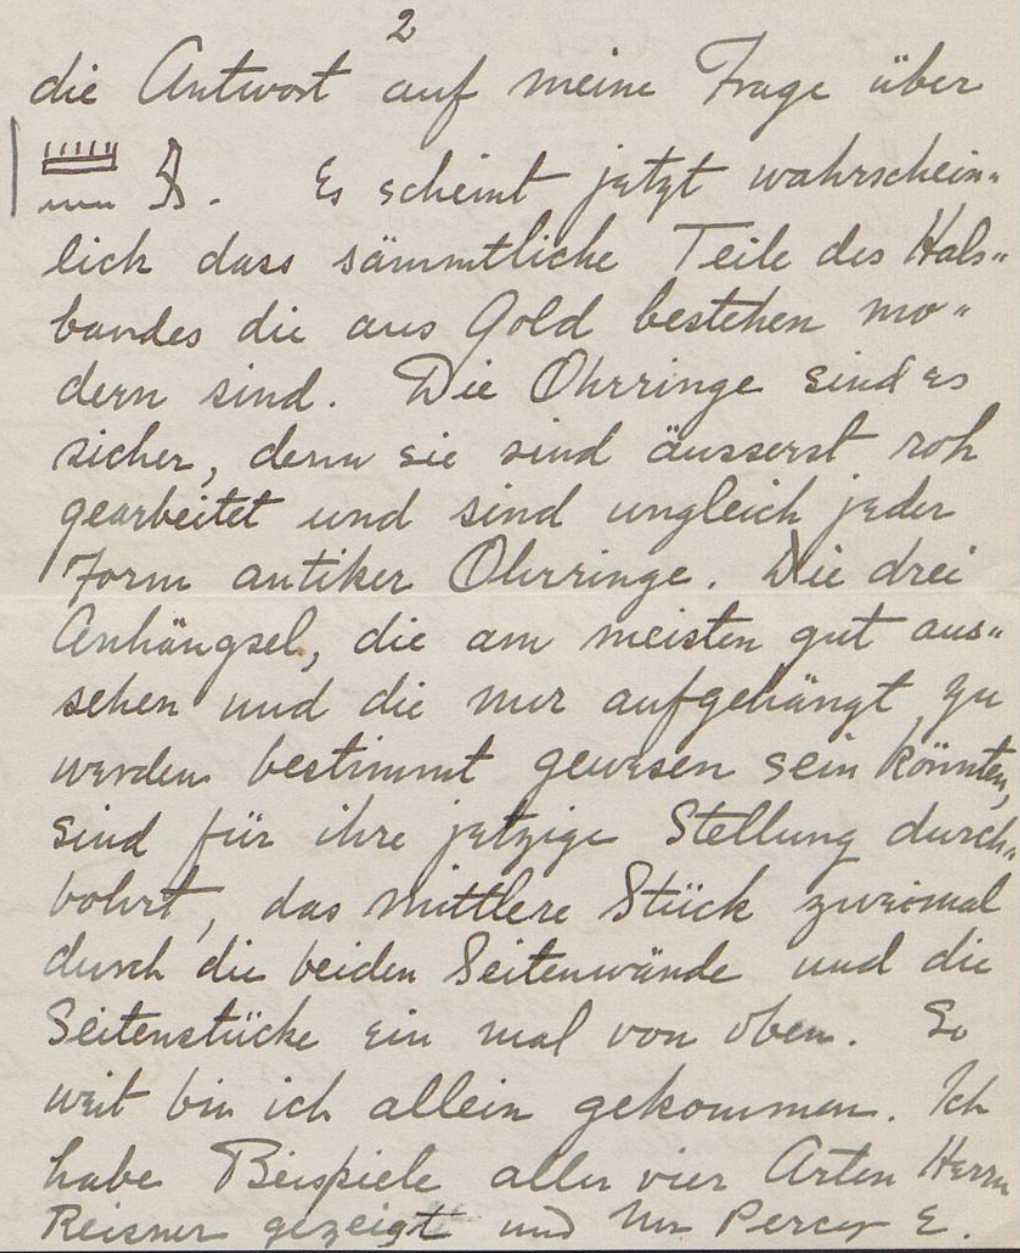 2
die Antwort auf meine Frage über
𓏠𓈖 𓀀. Es scheint jetzt wahrschein„
lich dass sämmtliche Teile des Hals„
bandes die aus Gold bestehen mo„
dern sind. Die Ohrringe sind es
sicher, denn sie sind äusserst roh
gearbeitet und sind ungleich jeder
Form antiker Ohrringe. Die drei
Anhängsel, die am meisten gut aus„
sehen und die nur aufgehängt zu
werden bestimmt gewesen sein könnten,
sind für ihre jetzige Stellung durch„
bohrt, das mittlere Stück zweimal
durch die beiden Seitenwände und die
Seitenstücke ein mal von oben. So
weit bin ich allein gekommen. Ich
habe Beispiele aller vier Arten Herrn
Reisner gezeigt und Mr Percy E.